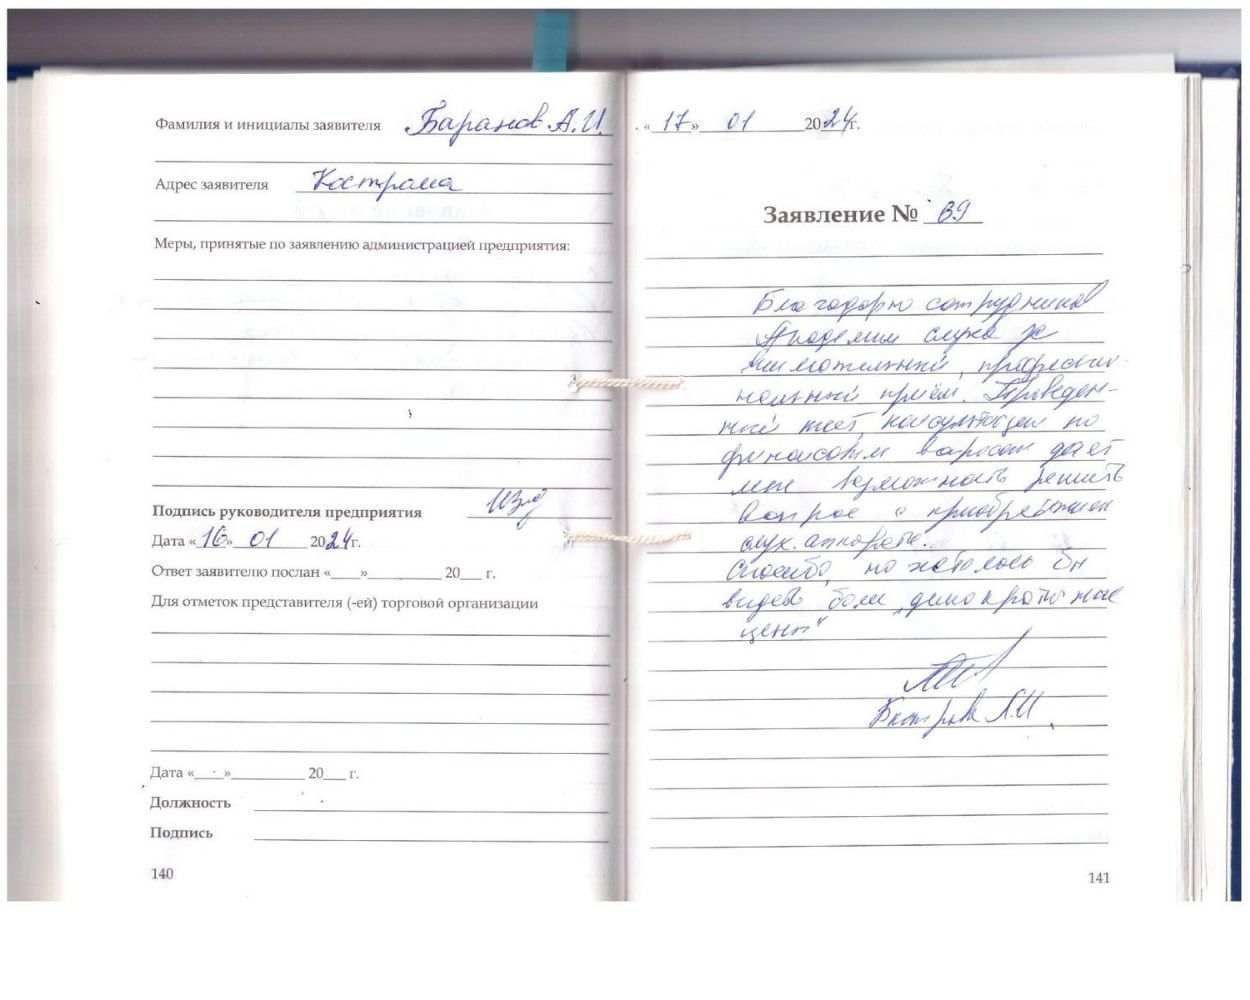 Фамилия и инициалы заявителя Баранов А.И.
Адрес заявителя Кострома
Меры, принятые по заявлению администрацией предприятия:
Подпись руководителя предприятия
Дата «16» 01 2024г.
Ответ заявителю послан «___»_________ 20___ г.
Для отметок представителя (-ей) торговой организации
Дата «___»_________ 20___ г.
Должность
Подпись
140
«17» 01 2024г.
Заявление № 69
Благодарю сотрудников
Академии слуха за
внимательный, професси-
нальный приём. Проведен-
ный тест, консультации по
финансовым вопросам дает
мне возможность решить
вопрос с приобретением
слух. аппарата.
Спасибо, но хотелось бы
видеть более „демократичные
цены"
А.И.
141